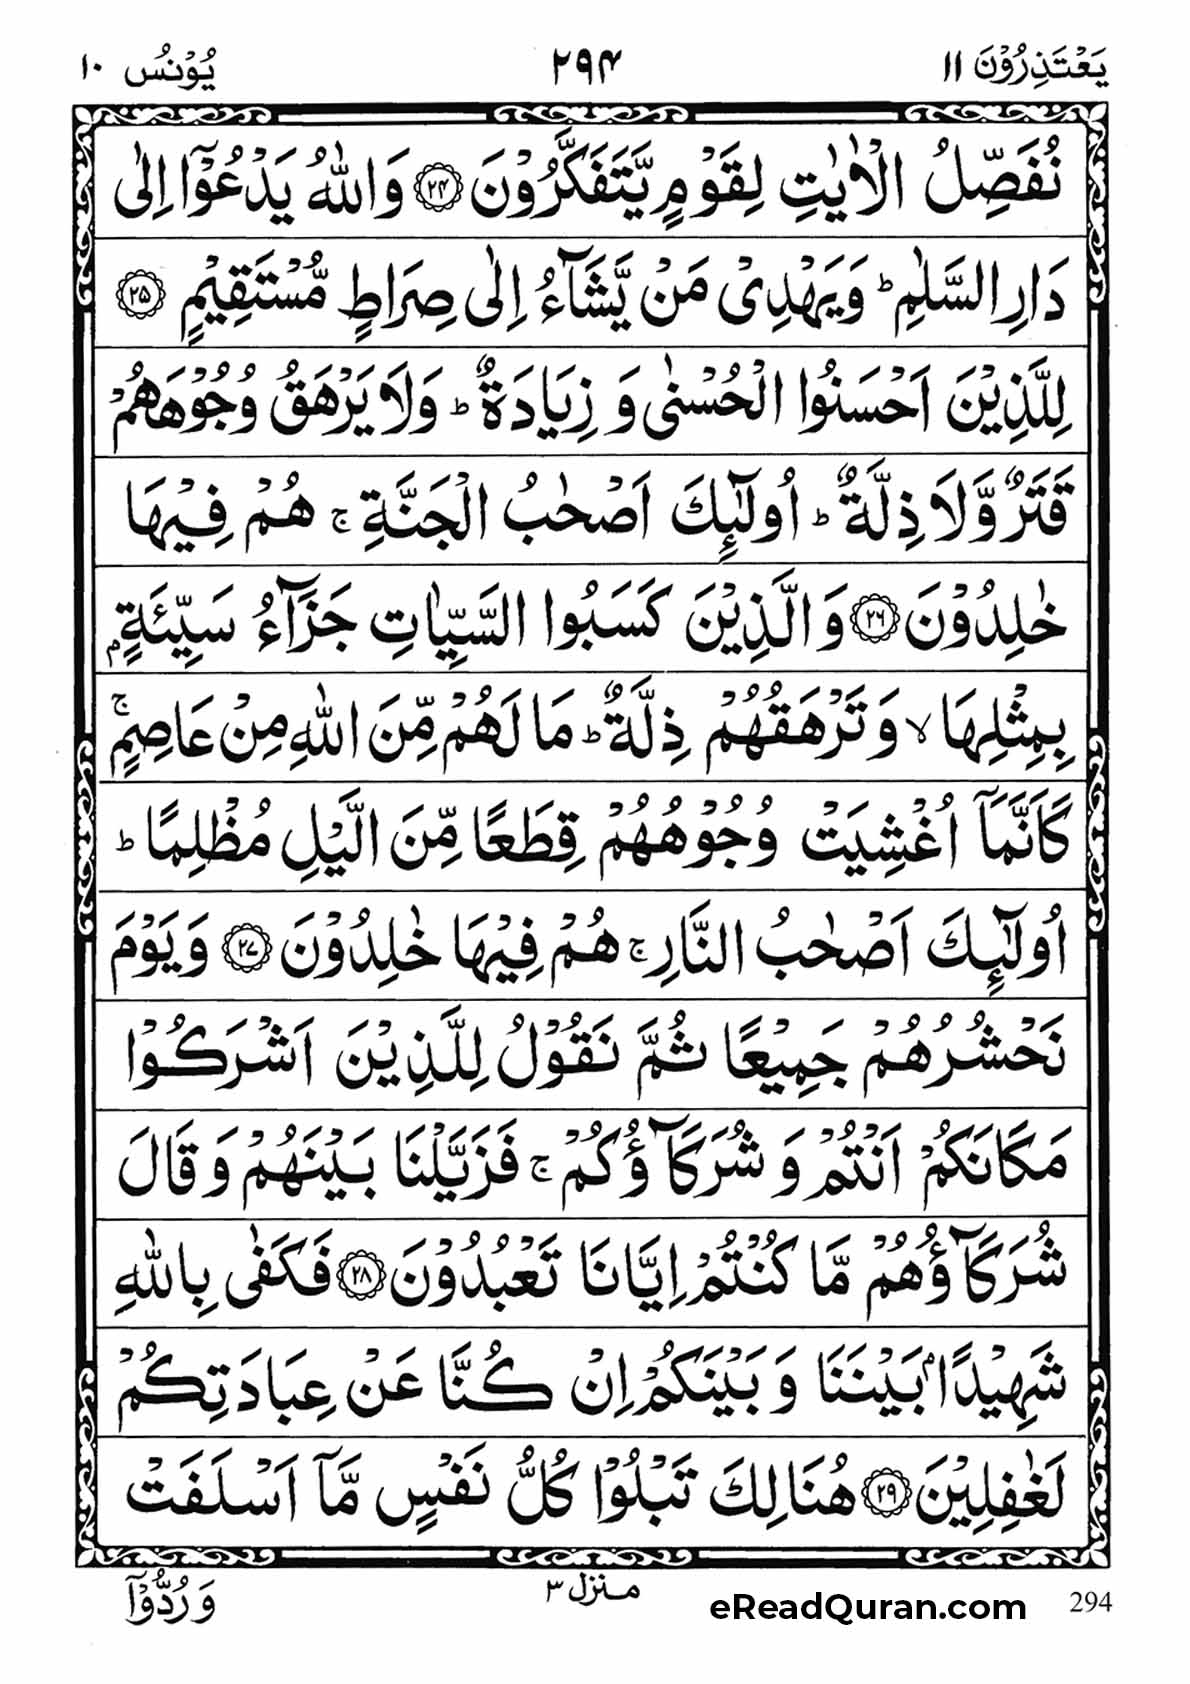 يَعْتَذِرُوْنَ ١١ ٢٩۴ يُوْنُس ١٠
نُفَصِّلُ الْاٰيٰتِ لِقَوْمٍ يَّتَفَكَّرُوْنَ ﴿٢۴﴾ وَاللّٰهُ يَدْعُوْۤا اِلٰى
دَارِ السَّلٰمِ ؕ وَيَهْدِىْ مَنْ يَّشَآءُ اِلٰى صِرَاطٍ مُّسْتَقِيْمٍ ﴿٢۵﴾
لِلَّذِيْنَ اَحْسَنُوا الْحُسْنٰى وَ زِيَادَةٌ ؕ وَلَا يَرْهَقُ وُجُوْهَهُمْ
قَتَرٌ وَّلَا ذِلَّةٌ ؕ اُولٰٓئِكَ اَصْحٰبُ الْجَنَّةِ ۚ هُمْ فِيْهَا
خٰلِدُوْنَ ﴿٢٦﴾ وَالَّذِيْنَ كَسَبُوا السَّيِّاٰتِ جَزَآءُ سَيِّئَةٍۭ
بِمِثْلِهَا ۙ وَ تَرْهَقُهُمْ ذِلَّةٌ ؕ مَا لَهُمْ مِّنَ اللّٰهِ مِنْ عَاصِمٍ ۚ
كَاَنَّمَاۤ اُغْشِيَتْ وُجُوْهُهُمْ قِطَعًا مِّنَ الَّيْلِ مُظْلِمًا ؕ
اُولٰٓئِكَ اَصْحٰبُ النَّارِ ۚ هُمْ فِيْهَا خٰلِدُوْنَ ﴿٢٧﴾ وَيَوْمَ
نَحْشُرُهُمْ جَمِيْعًا ثُمَّ نَقُوْلُ لِلَّذِيْنَ اَشْرَكُوْا
مَكَانَكُمْ اَنْتُمْ وَ شُرَكَآؤُكُمْ ۚ فَزَيَّلْنَا بَيْنَهُمْ وَ قَالَ
شُرَكَآؤُهُمْ مَّا كُنْتُمْ اِيَّانَا تَعْبُدُوْنَ ﴿٢٨﴾ فَكَفٰى بِاللّٰهِ
شَهِيْدًاۢ بَيْنَنَا وَ بَيْنَكُمْ اِنْ كُنَّا عَنْ عِبَادَتِكُمْ
لَغٰفِلِيْنَ ﴿٢٩﴾ هُنَالِكَ تَبْلُوْا كُلُّ نَفْسٍ مَّاۤ اَسْلَفَتْ
وَ رُدُّوْۤا
منزل ٣
eReadQuran.com
294